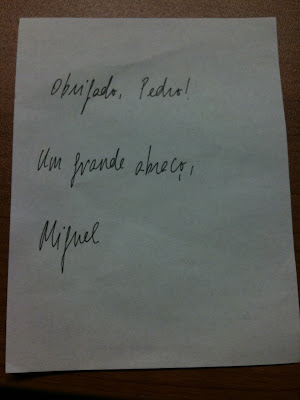 Obrigado, Pedro!
Um grande abraço,
Miguel